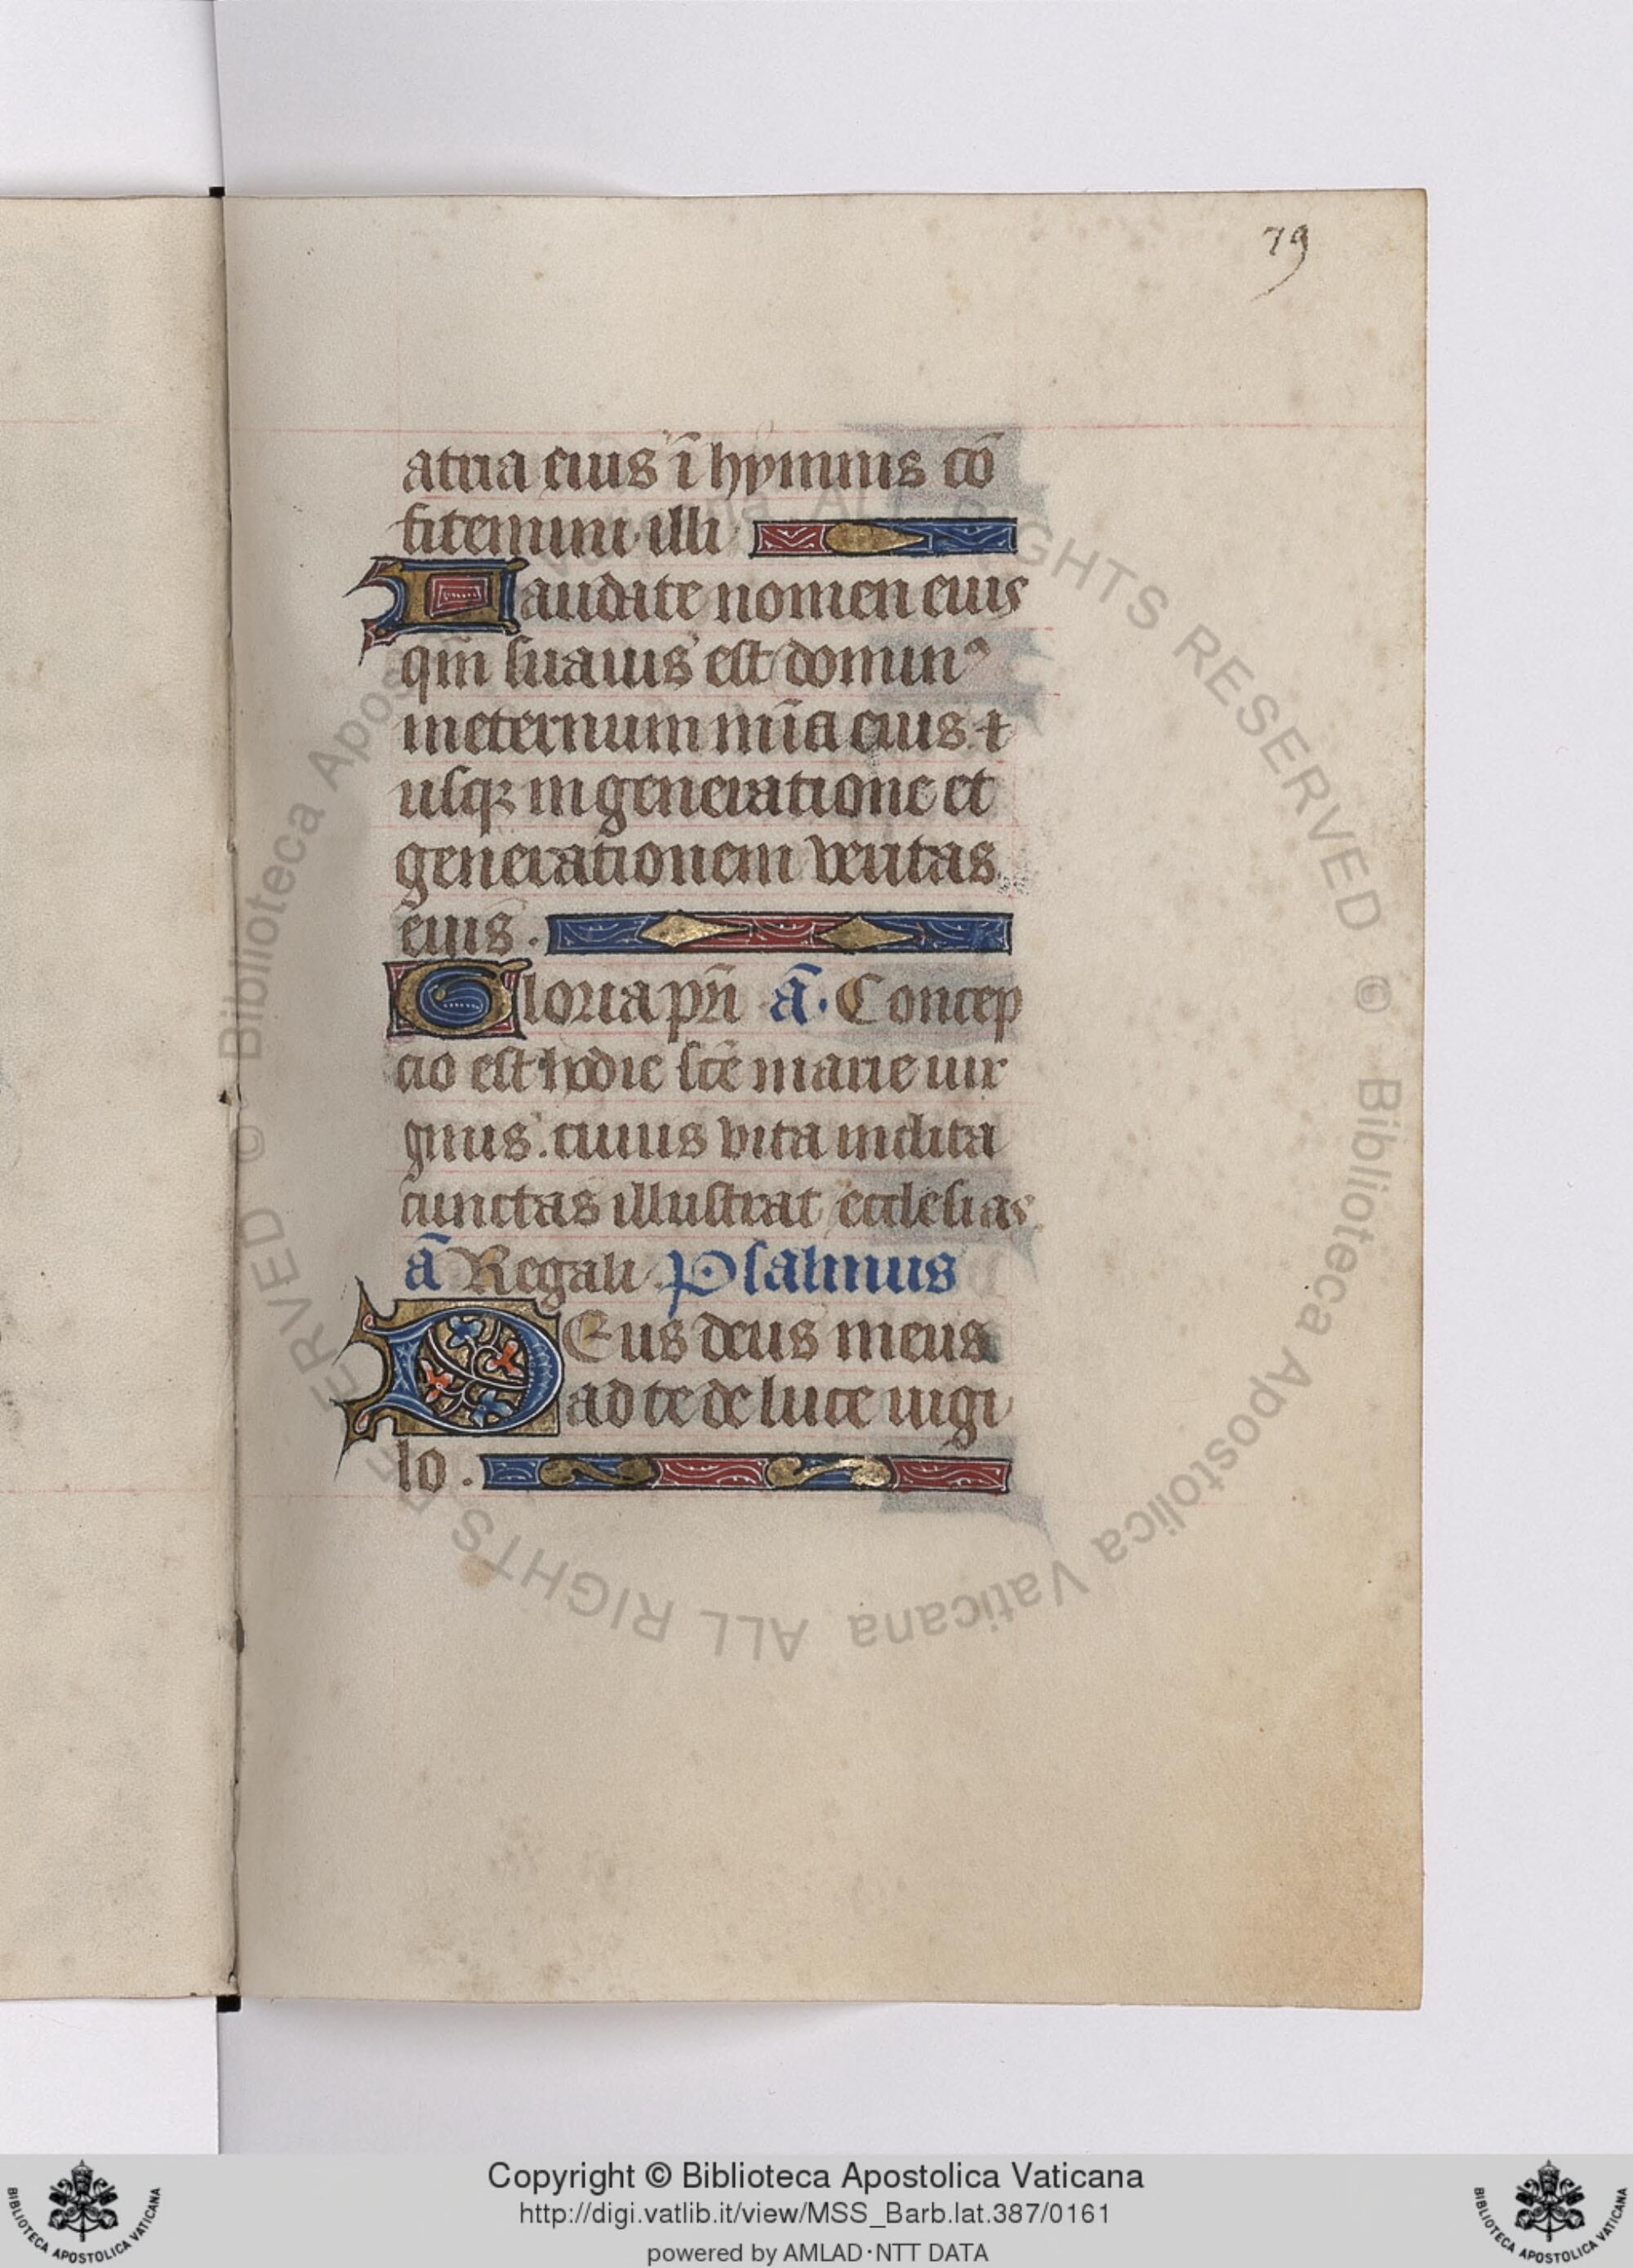 79
atria eius ī hymnis cō
fitemini illi
Laudate nomen eius
qm̄ suauis est dominꝰ
ineternum mīa eius. ⁊
usqꝫ in generatione et
generationem veritas
eius.
Gloria pr̄i ā. Concep
cio est hodie sc̄e marie uir
ginis. cuius vita inclita
cunctas illustrat ecclesias
ā Regali Psalmus
DEus deus meus
ad te de luce uigi
lo.
© Biblioteca Apostolica Vaticana ALL RIGHTS RESERVED © Biblioteca Apostolica Vaticana ALL RIGHTS RESERVED
Copyright © Biblioteca Apostolica Vaticana
http://digi.vatlib.it/view/MSS_Barb.lat.387/0161
powered by AMLAD·NTT DATA
BIBLIOTECA APOSTOLICA VATICANA
BIBLIOTECA APOSTOLICA VATICANA